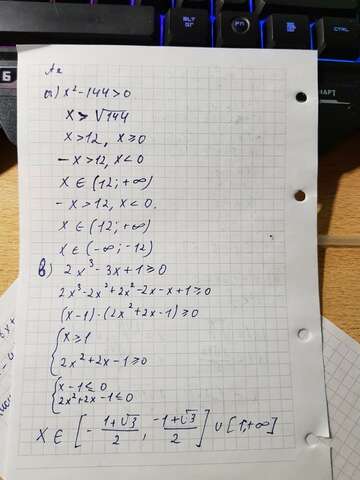 ALT
GR
FN
CTRL
6
HIFT
а) x² - 144 > 0
x > √144
x > 12, x ≥ 0
- x > 12, x < 0
x ∈ (12; +∞)
- x > 12, x < 0.
x ∈ (12; +∞)
x ∈ (-∞; -12)
в) 2x³ - 3x + 1 ≥ 0
2x³ - 2x² + 2x² - 2x - x + 1 ≥ 0
(x - 1) · (2x² + 2x - 1) ≥ 0
{ x ≥ 1
2x² + 2x - 1 ≥ 0
{ x - 1 ≤ 0
2x² + 2x - 1 ≤ 0
x ∈ [ - 1+√3/2 , -1+√3/2 ] ∪ [1, +∞]